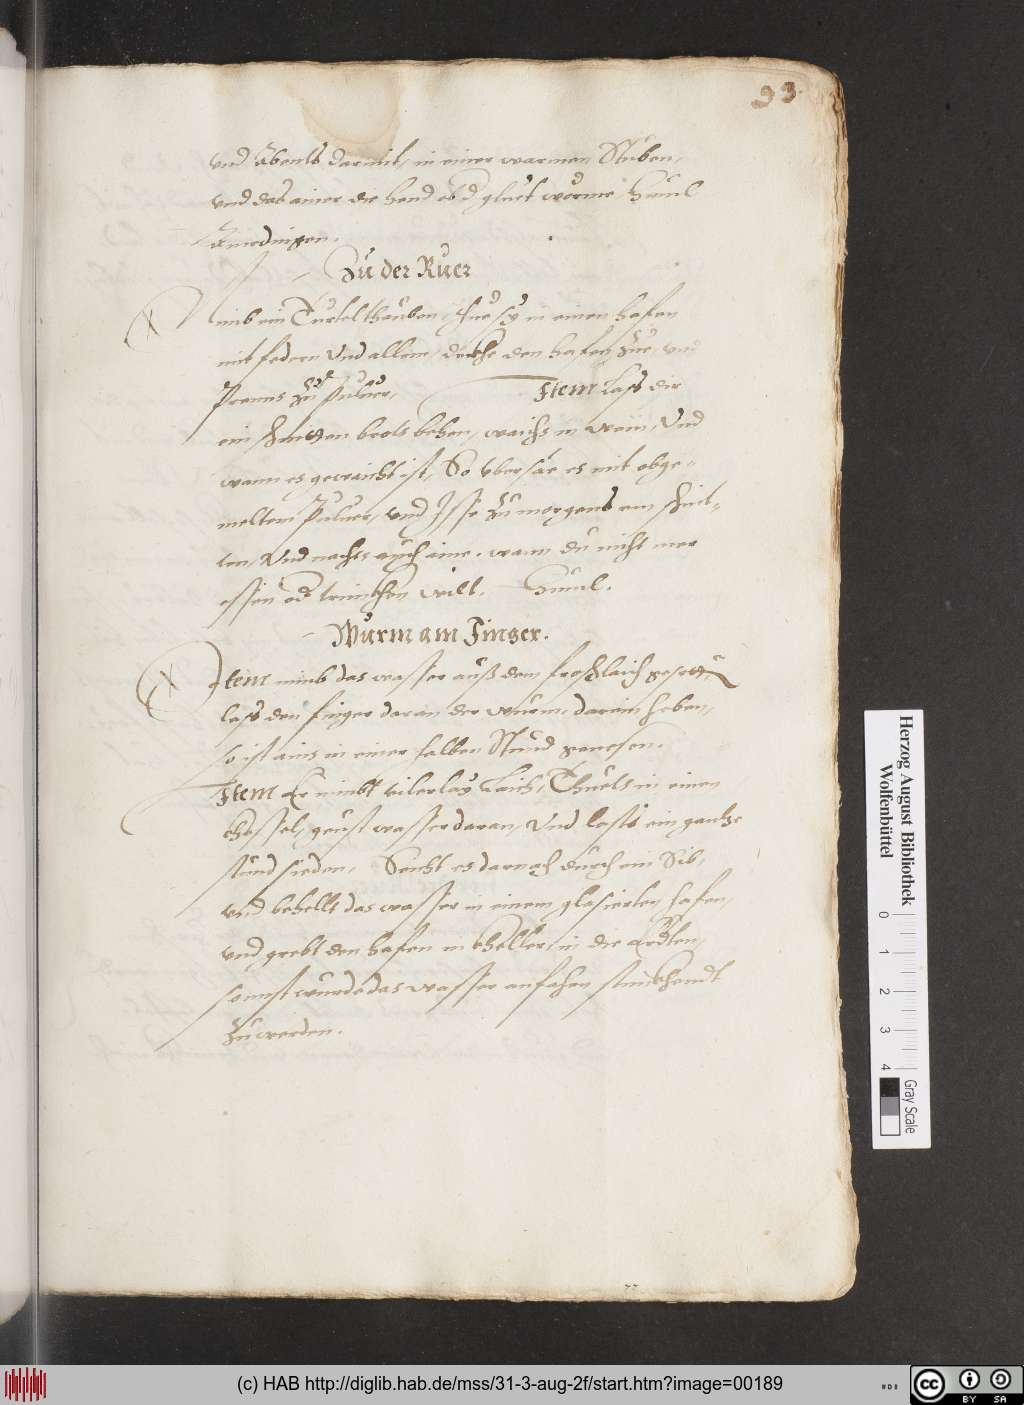 93.
vnd Abents darmit, in einer warmen Stuben,
vnd das ainer die hend ob d gluet wörme, Hüml
Zu der Ruer
nimb ein Turteltauben, thue sy in einen hafen
mit federn Vnd allem, deckhe den hafen zue, vnd
Prenns zu Puluer, Item Lass dir
ein schnitten brots behen, waichs in wein, Vnd
wann es gewaicht ist, So vbersäe es mit obge-
meltem Puluer, vnd Isse zu morgens ein schnit-
ten, Vnd nachts auch aine. wann du nicht mer
essen od trinckhen wilt. Hüml.
Wurm am Finger.
Item nimb das wasser auß dem froschlaich
lass den finger daran der wurm, darein heben,
so ist ains in einer halben Stund genesen.
Item Er nimbt vilerlay Laich, Thuets in einen
khessel, geust wasser daran, Vnd lests ein gantze
stund sieden, Seicht es darnach durch ein Sib,
vnd behellt das wasser in einem glasierten hafen,
vnd grebt den hafen in kheller, in die Erdten,
sonnst wurde das wasser anfahen stinckhendt
zu werden.
Herzog August Bibliothek
Wolfenbüttel
0 1 2 3 4
Gray Scale
(c) HAB http://diglib.hab.de/mss/31-3-aug-2f/start.htm?image=00189
cc
BY SA